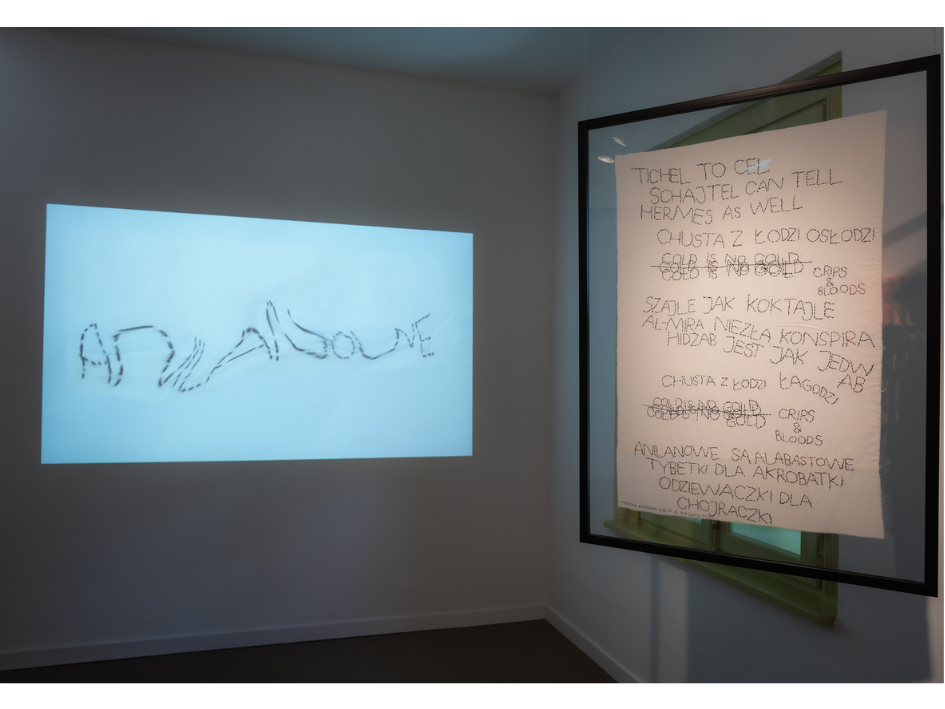 TICHEL TO CEL
SCHAJTEL CAN TELL
HERMES AS WELL
CHUSTA Z ŁODZI OSŁODZI
COLD IS NO GOLD
COLD IS NO GOLD
CRIPS
&
BLOODS
SZAJLE JAK KOKTAJLE
AL-MIRA NIEZŁA KONSPIRA
HIDŻAB JEST JAK JEDW
AB
CHUSTA Z ŁODZI ŁAGODZI
COLD IS NO GOLD
COLD IS NO GOLD
CRIPS
&
BLOODS
ANILANOWE SĄ ALABASTOWE
TYBETKI DLA AKROBATKI
ODZIEWACZKI DLA
CHOJRACZKI